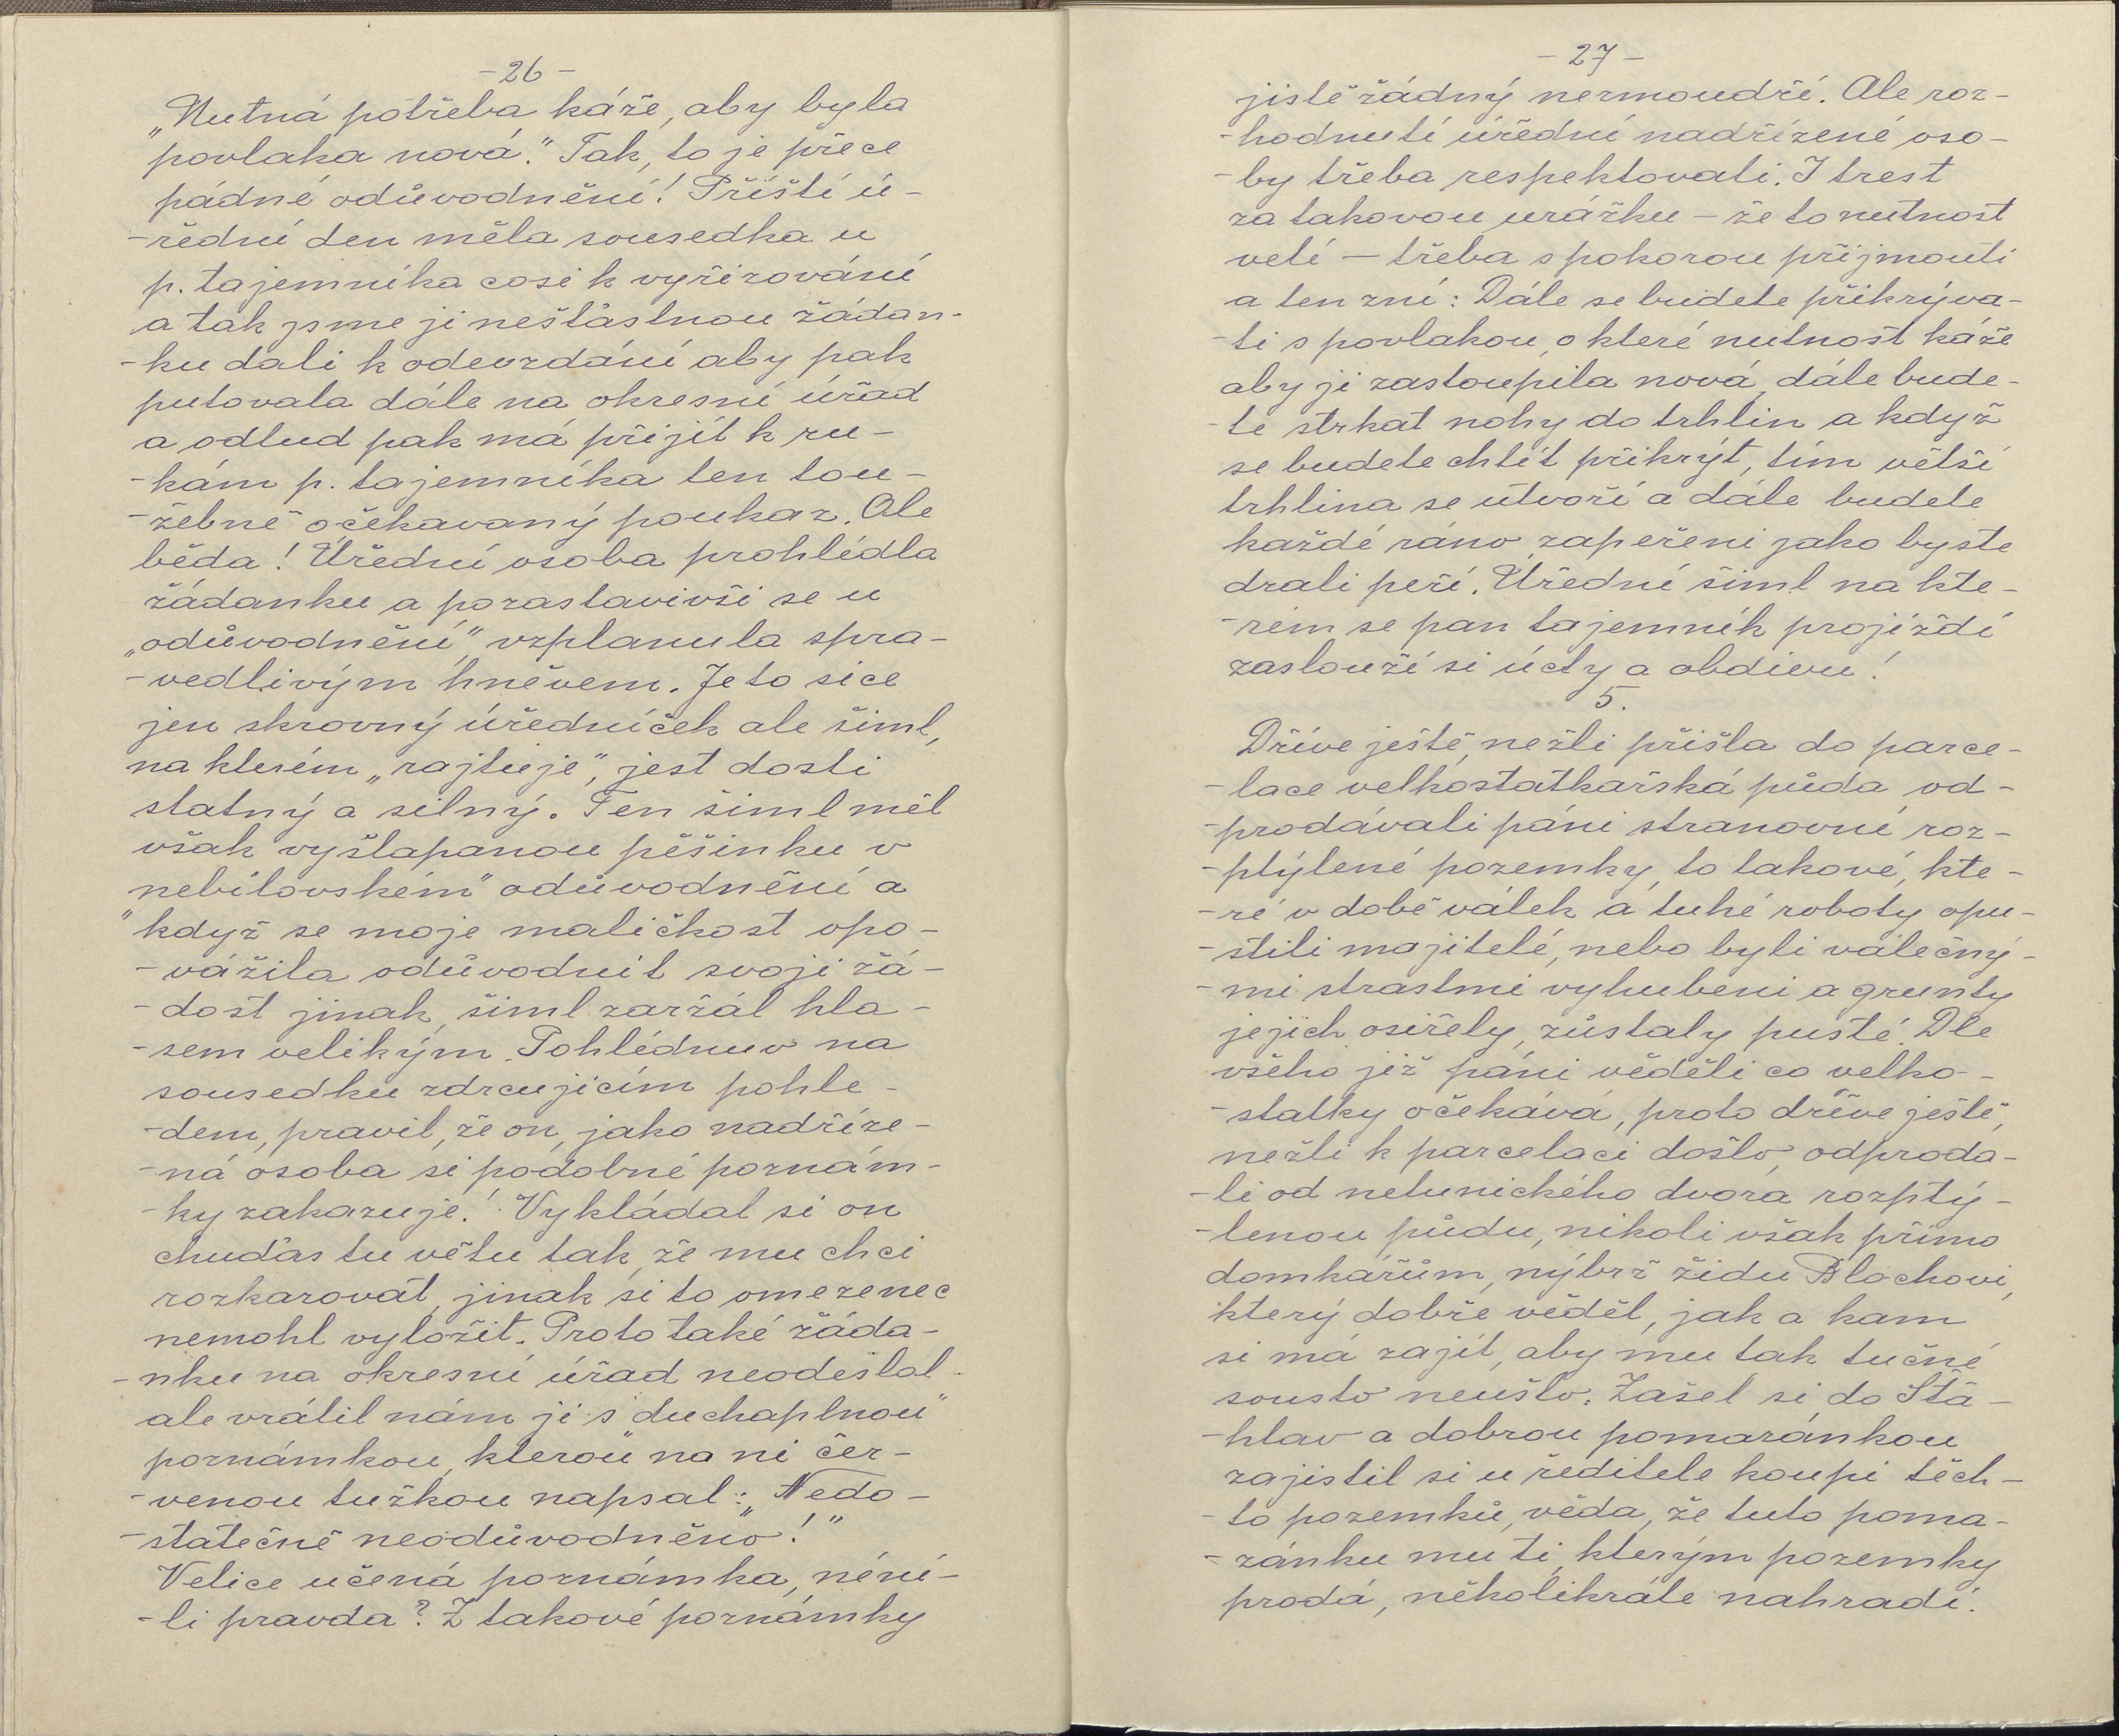 -26-
„Nutná potřeba káže, aby byla
povlaka nová.“ Tak, to je přece
pádné odůvodnění! Příští ú-
-řední den měla sousedka u
p. tajemníka cosi k vyřizování
a tak jsme ji nešťastnou žádan-
-ku dali k odevzdání aby pak
putovala dále na okresní úřad
a odtud pak má přijít k ru-
-kám p. tajemníka ten tou-
-žebně očekavaný poukaz. Ale
běda! Úřední osoba prohlédla
žádanku a pozastavivši se u
„odůvodnění“ vzplanula spra-
-vedlivým hněvem. Je to sice
jen skrovný úředníček ale šiml,
na kterém „rajtuje“, jest dosti
statný a silný. Ten šiml měl
však vyšlapanou pěšinku v
nebílovském“ odůvodnění a
"když se moje maličkost opo-
-vážila odůvodnit svoji žá-
-dost jinak, šiml zaržál hla-
-sem velikým. Pohlédnuv na
sousedku zdrcujícím pohle-
-dem, pravil, že on, jako nadříze-
-ná osoba si podobné poznám-
-ky zakazuje! Vykládal si on
chuďas tu větu tak, že mu chci
rozkazovat, jinak si to omezenec
nemohl vyložit. Proto také žáda-
-nku na okresní úřad neodeslal
ale vrátil nám ji s duchaplnou"
poznámkou, kterou na ni čer-
-venou tužkou napsal: „Nedo-
-statečně neodůvodněno!“
Velice učená poznámka, není-
-li pravda? Z takové poznámky
-27-
jistě žádný nezmoudří. Ale roz-
-hodnutí úřední nadřízené oso-
-by třeba respektovati. I trest
za takovou urážku – že to nutnost
velí – třeba s pokorou přijmouti
a ten zní: Dále se budete přikrýva-
-ti s povlakou, o které nutnost káže
aby ji zastoupila nová, dále bude-
-te strkat nohy do trhlin a když
se budete chtít přikrýt, tím větší
trhlina se utvoří a dále budete
každé ráno zapeřeni jako byste
drali peří. Úřední šiml na kte-
-rém se pan tajemník projíždí
zaslouží si úcty a obdivu!
5.
Dříve ještě, nežli přišla do parce-
-lace velkostatkařská půda, od-
-prodávali páni stranovné roz-
-ptýlené pozemky, to takové, kte-
-ré v době válek a tuhé roboty opu-
-stili majitelé, nebo byli válečný-
-mi strastmi vyhubeni a grunty
jejich osiřely, zůstaly pusté. Dle
všeho již páni věděli co velko-
-statky očekává, proto dříve ještě,
nežli k parcelaci došlo, odproda-
-li od netunického dvora rozptý-
-lenou půdu, nikoli však přímo
domkářům, nýbrž židu Blochovi,
který dobře věděl, jak a kam
si má zajít, aby mu tak tučné
sousto neušlo. Zašel si do Šťá-
-hlav a dobrou pomazánkou
zajistil si u ředitele koupi těch-
-to pozemků, věda, že tuto poma-
-zánku mu ti, kterým pozemky
prodá, několikráte nahradí.